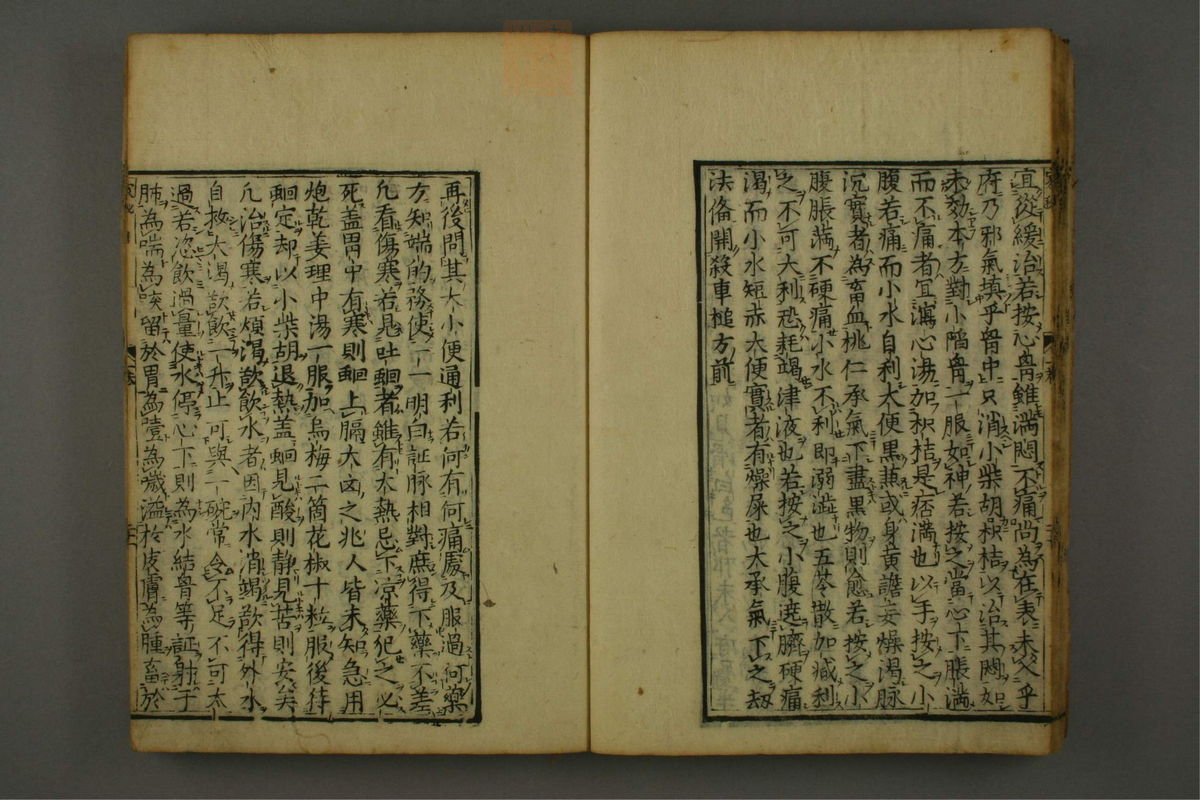 宜從緩治若按心胷雖滿悶不痛尚為在表未入乎
府乃邪氣填乎胷中只消小柴胡枳桔以治其悶如
未効本方對小陷胷一服如神若按之當心下脹滿
而不痛者宜瀉心湯加枳桔是痞滿也以手按之小
腹若痛而小水自利大便黑兼或身黃譫妄燥渴脉
沉實者為畜血桃仁承氣下盡黑物則愈若按之小
腹脹滿不硬痛小水不利即溺澁也五苓散加减利
之不可大利恐耗竭津液也若按之小腹遶臍硬痛
渴而小水短赤大便實者有燥屎也大承氣下之刼
法俻開殺車槌方前
再後問其大小便通利若何有何痛處及服過何藥
方知端的務使一一明白証脉相對庶得下藥不差
凢看傷寒若見吐蛔者雖有大熱忌下凉藥犯之必
死盖胃中有寒則蛔上膈大凶之兆人皆未知急用
炮乾姜理中湯一服加烏梅二箇花椒十粒服後待
蛔定却以小柴胡退熱盖蛔見酸則静見苦則安矣
凢治傷寒若煩渴欲飲水者因内水消竭欲得外水
自救大渴欲飲一升止可與一碗常令不足不可太
過若恣飲過量使水停心下則為水結胷等証射于
肺為喘為咳留於胃為噎為噦溢於皮膚為腫畜於